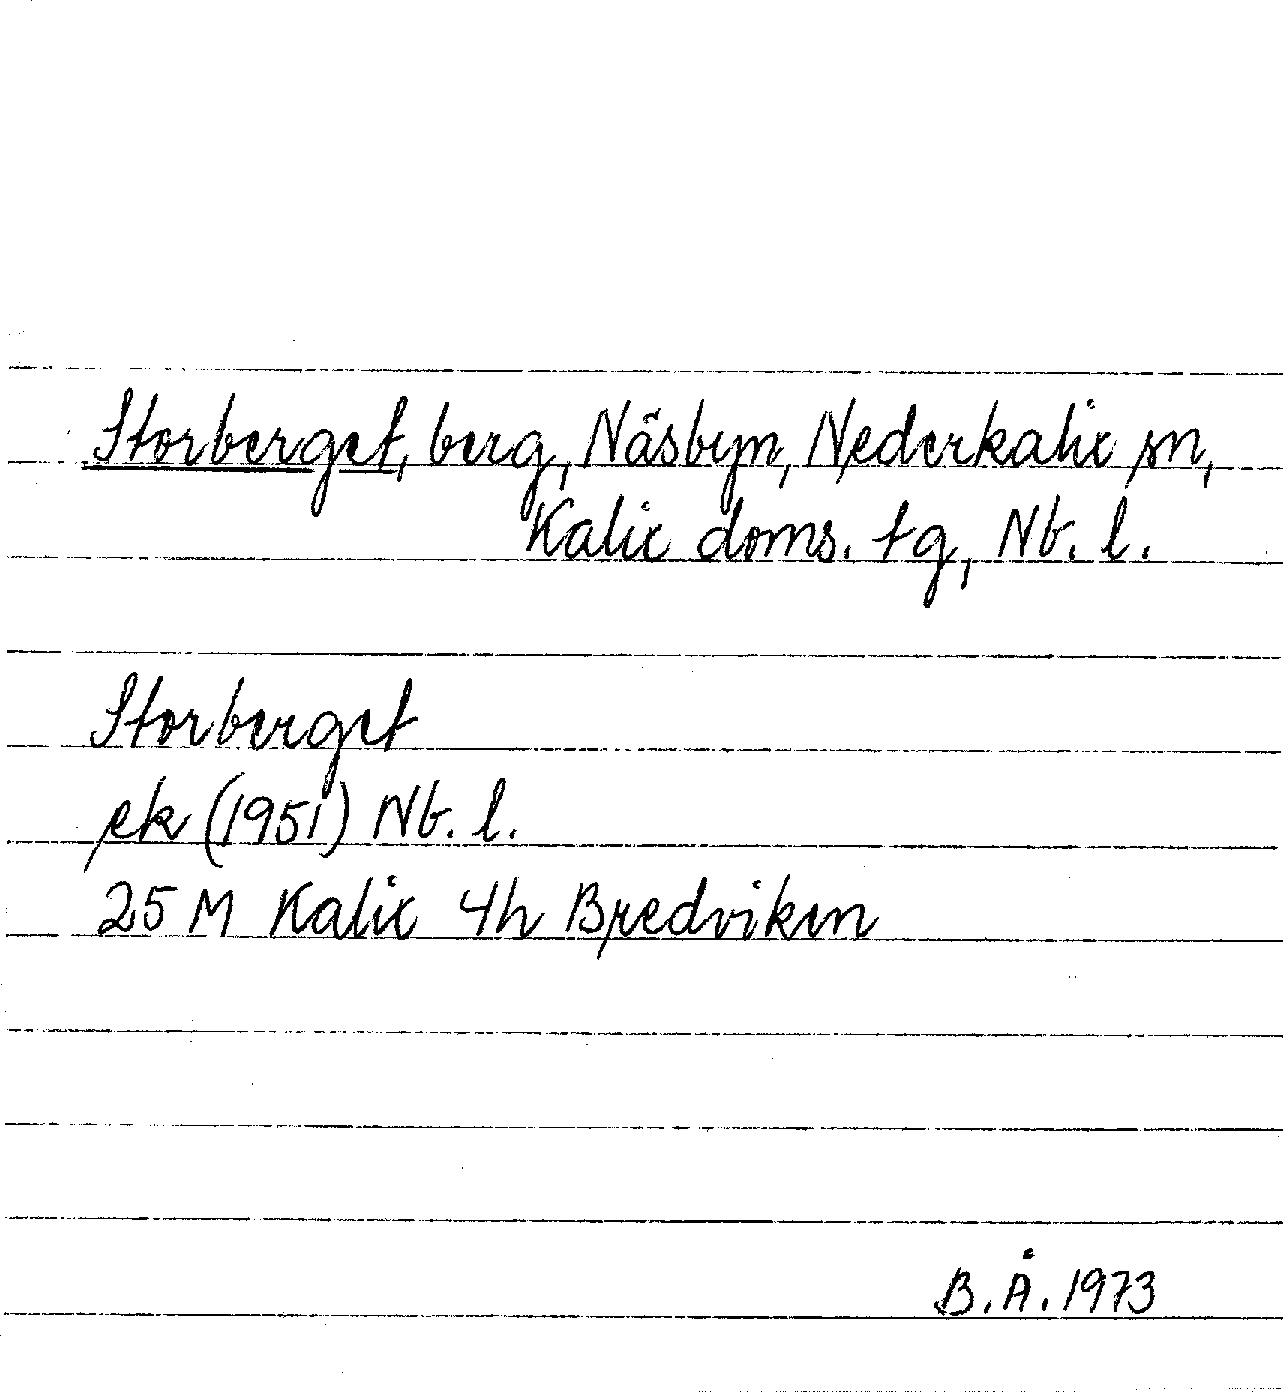 Storberget, berg, Näsbyn, Nederkalix sn,
Kalix doms. tg, Nb. l.
Storberget
ek (1951) Nb. l.
25 M Kalix 4h Bredviken
B.Å. 1973